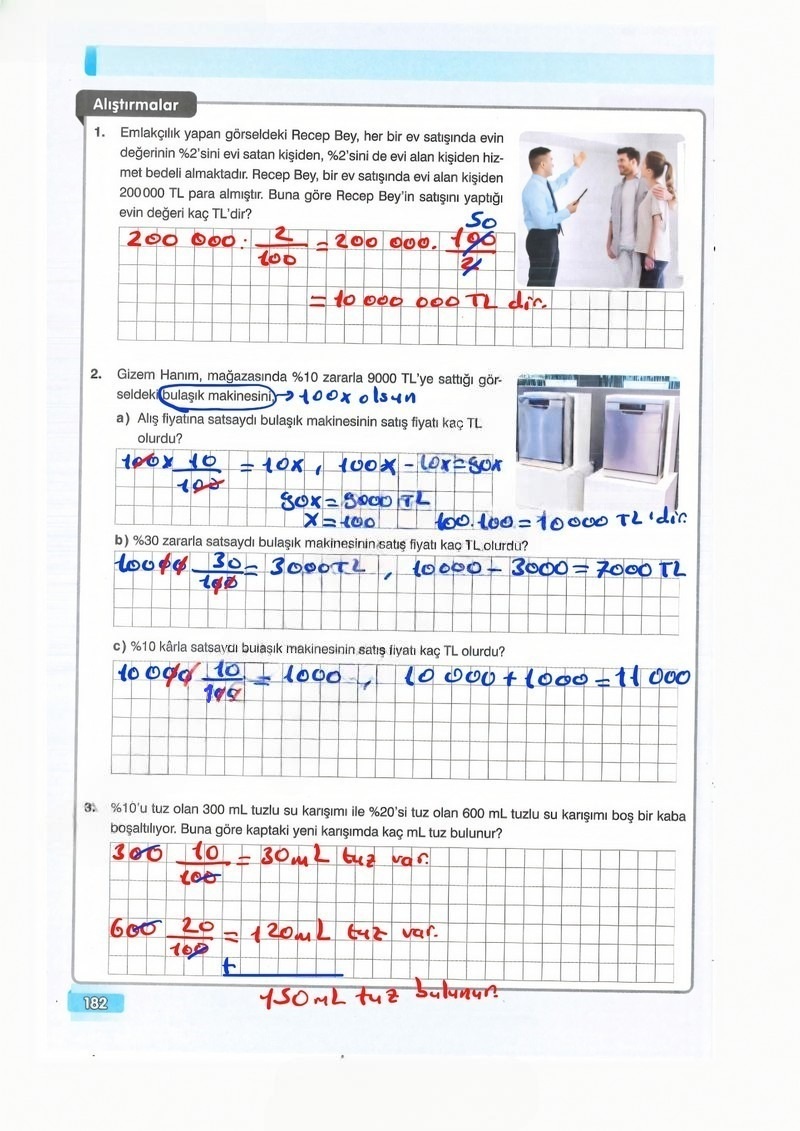 Alıştırmalar
1. Emlakçılık yapan görseldeki Recep Bey, her bir ev satışında evin
değerinin %2'sini evi satan kişiden, %2'sini de evi alan kişiden hiz-
met bedeli almaktadır. Recep Bey, bir ev satışında evi alan kişiden
200 000 TL para almıştır. Buna göre Recep Bey'in satışını yaptığı
evin değeri kaç TL'dir?
50
200 000 : 2/100 = 200 000. 100/2
= 10 000 000 TL dir.
2. Gizem Hanım, mağazasında %10 zararla 9000 TL'ye sattığı gör-
seldeki bulaşık makinesini → 100x olsun
a) Alış fiyatına satsaydı bulaşık makinesinin satış fiyatı kaç TL
olurdu?
100x 10/100 = 10x, 100x - 10x = 90x
90x = 9000 TL
x = 100 100.100 = 10000 TL'dir.
b) %30 zararla satsaydı bulaşık makinesinin satış fiyatı kaç TL olurdu?
10000 30/100 = 3000 TL, 10000 - 3000 = 7000 TL
c) %10 kârla satsaydı bulaşık makinesinin satış fiyatı kaç TL olurdu?
10 000 10/100 = 1000, 10 000 + 1000 = 11 000
3. %10'u tuz olan 300 mL tuzlu su karışımı ile %20'si tuz olan 600 mL tuzlu su karışımı boş bir kaba
boşaltılıyor. Buna göre kaptaki yeni karışımda kaç mL tuz bulunur?
300 10/100 = 30 mL tuz var.
600 20/100 = 120 mL tuz var.
+
150 mL tuz bulunur.
182